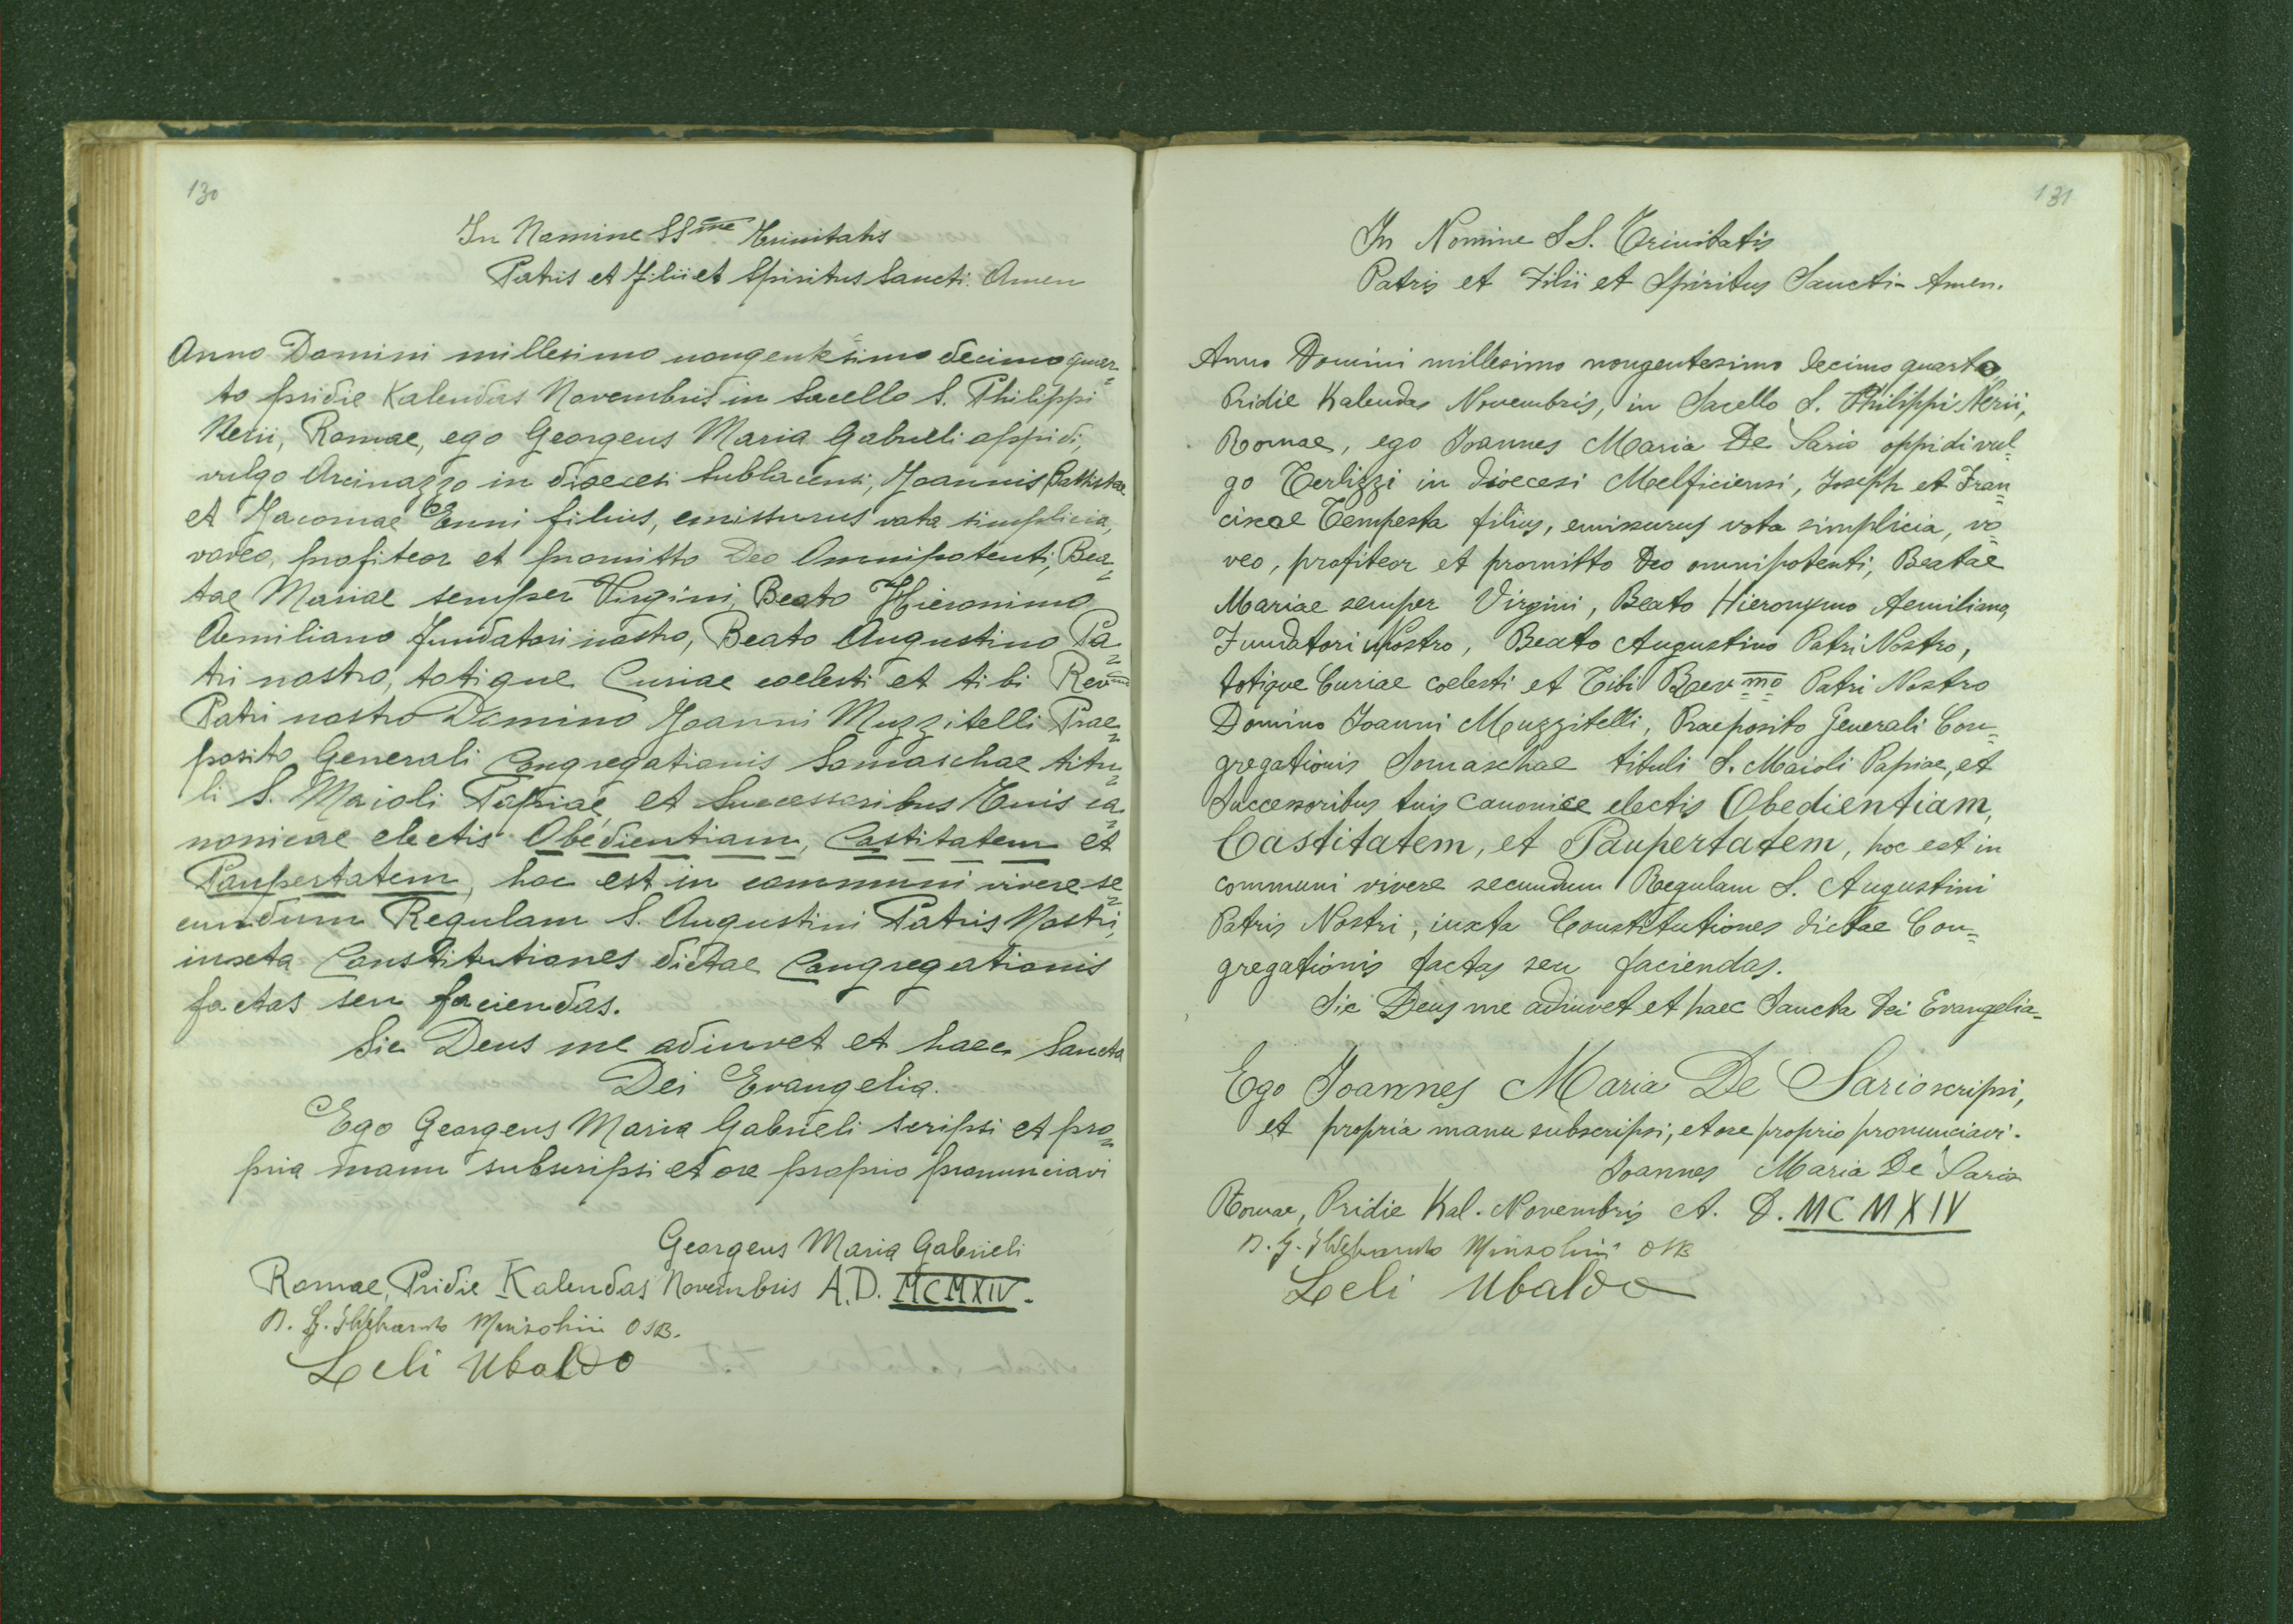 130
In Nomine SS.me Trinitatis
Patris et Filii et Spiritus Sancti. Amen
Anno Domini millesimo nongentesimo decimo quar=
to pridie Kalendas Novembris in Sacello S. Philippi
Nerii, Romae, ego Georgeus Maria Gabrieli oppidi,
vulgo Arcinazzo in dioecesi Sublacensi, Joannis Battistae
et Jacomae Enni filius, emissurus vota simplicia,
voveo, profiteor et promitto Deo Omnipotenti, Bea=
tae Mariae semper Virgini, Beato Hieronimo
Aemiliano fundatori nostro, Beato Augustino Pa=
tri nostro, totique Curiae coelesti et tibi Rev.mo
Patri nostro Domino Joanni Muzzitelli Prae=
posito Generali Congregationis Somaschae titu=
li S. Maioli Papiae et Successoribus Tuis ca=
nonicae electis Obedientiam, Castitatem et
Paupertatem, hoc est in communi vivere se=
cundum Regulam S. Augustini Patris Nostri,
iuxta Constitutiones dictae Congregationis
factas seu faciendas.
Sic Deus me adiuvet et haec Sancta
Dei Evangelia.
Ego Georgeus Maria Gabrieli scripsi et pro=
pria manu subscripsi et ore proprio pronunciavi
Georgeus Maria Gabrieli
Romae, Pridie Kalendas Novembris A.D. MCMXIV.
D. G. Ildebrando OSB.
Leli Ubaldo
131
In Nomine SS. Trinitatis
Patris et Filii et Spiritus Sancti - Amen.
Anno Domini millesimo nongentesimo decimo quarto,
Pridie Kalendas Novembris, in Sacello S. Philippi Nerii,
Romae, ego Joannes Maria De Sario oppidi vul=
go Terlizzi in dioecesi Melficiensi, Joseph et Fran=
ciscae Tempesta filius, emissurus vota simplicia, vo=
veo, profiteor et promitto Deo omnipotenti, Beatae
Mariae semper Virgini, Beato Hieronymo Aemiliano,
Fundatori Nostro, Beato Augustino Patri Nostro,
totique Curiae coelesti et Tibi Rev.mo Patri Nostro
Domino Joanni Muzzitelli, Praeposito Generali Con=
gregationis Somaschae tituli S. Maioli Papiae, et
Successoribus tuis canonice electis Obedientiam,
Castitatem, et Paupertatem, hoc est in
communi vivere secundum Regulam S. Augustini
Patris Nostri, iuxta Constitutiones dictae Con=
gregationis factas seu faciendas.
Sic Deus me adiuvet et haec Sancta Dei Evangelia-
Ego Joannes Maria De Sario scripsi,
et propria manu subscripsi, et ore proprio pronunciavi.
Joannes Maria De Sario
Romae, Pridie Kal. Novembris A. D. MCMXIV
D. G. Ildebrando OSB
Leli Ubaldo